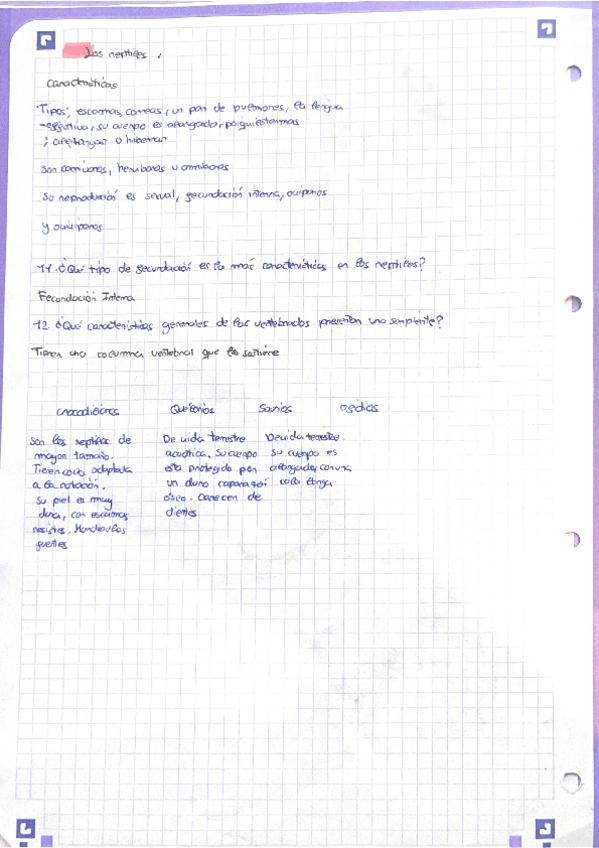 Los reptiles.
Características
Tipos; escamas, corneas, un par de pulmones, la lengua
su cuerpo es alargado,
o hibernan
Son carnivoros, herviboros u omnivoros
Su reproducción es sexual, fecundación interna, oviparos
y oviviparos
11. ¿Qué tipo de fecundación es la más característica en los reptiles?
Fecondación Interna
12. ¿Qué características generales de los vertebrados presentan una serpiente?
Tienen una columna vertebral que la sostiene
crocodilianos Quelonios Saurios ofidios
Son los reptiles de
mayor tamaño.
Tienen cola adaptada
a la natación.
Su piel es muy
dura, con escamas
Mandibulas
fuertes
De vida terrestre
acuatica. Su cuerpo
esta protegido por
un duro caparazó
oseo. Carecen de
dientes
De vida terrestre.
Su cuerpo es
alargado, con una
cola larga